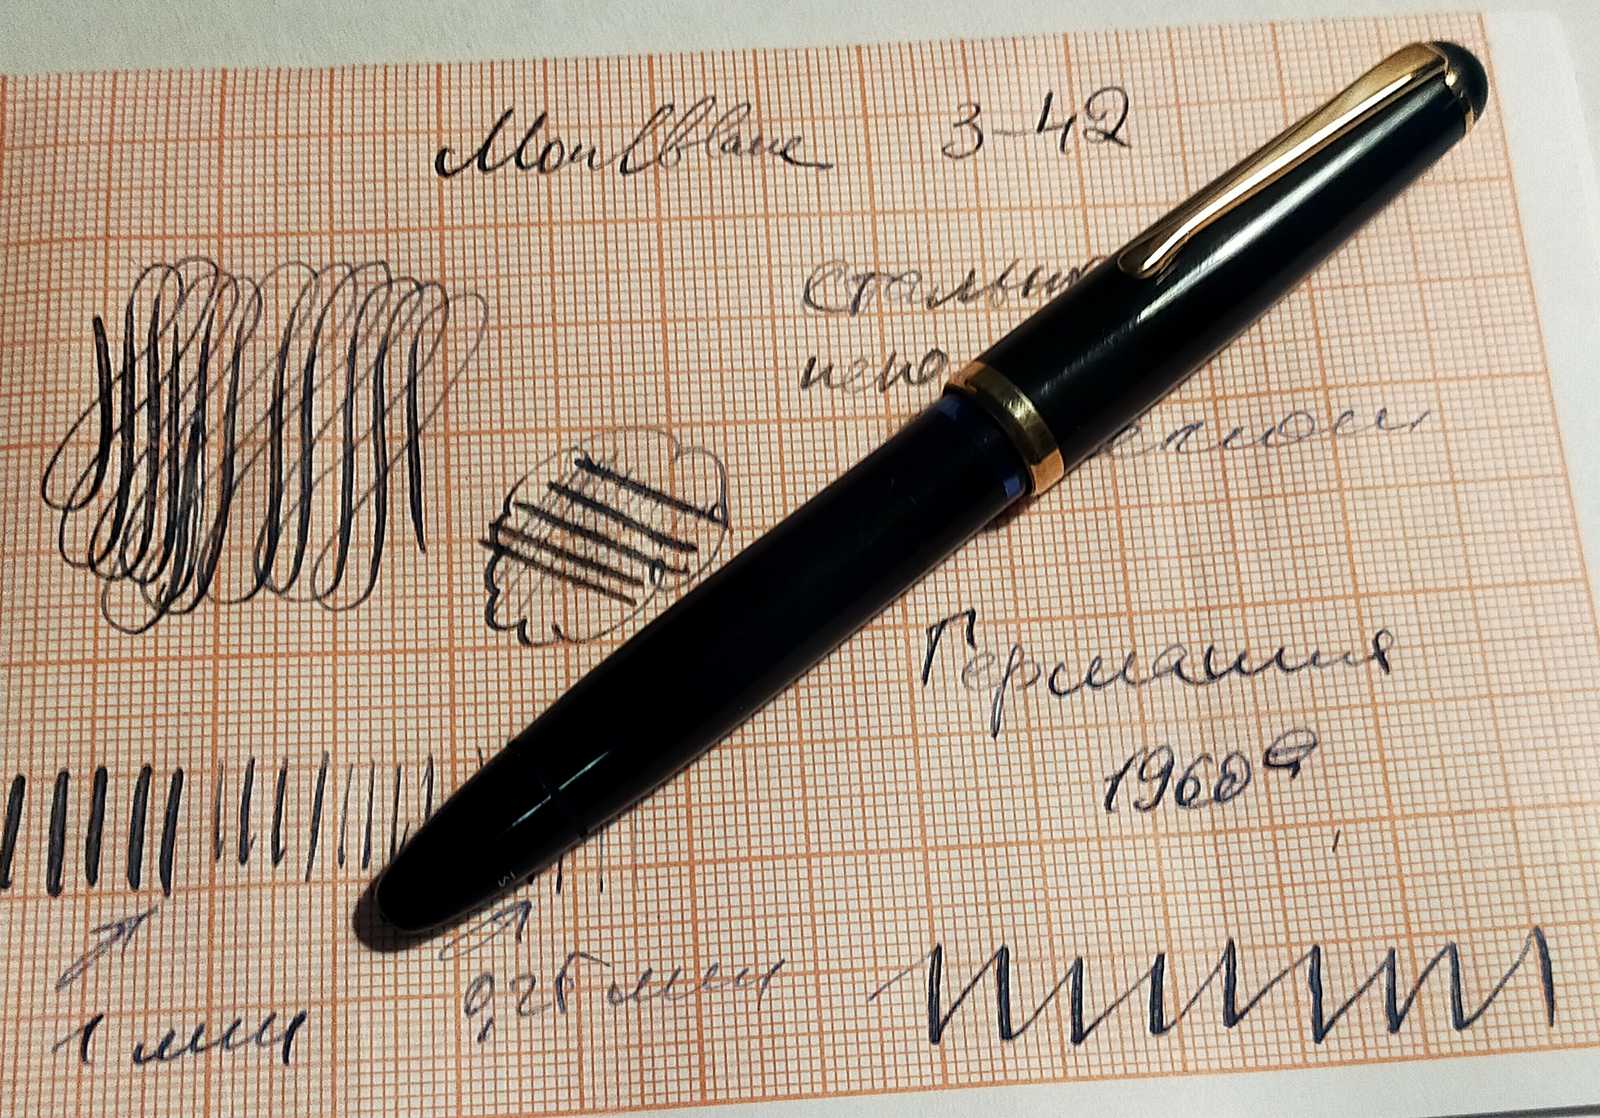 Montblanc 3-42
стальн
перо
Германия
1960е
1 мм 0,25 мм